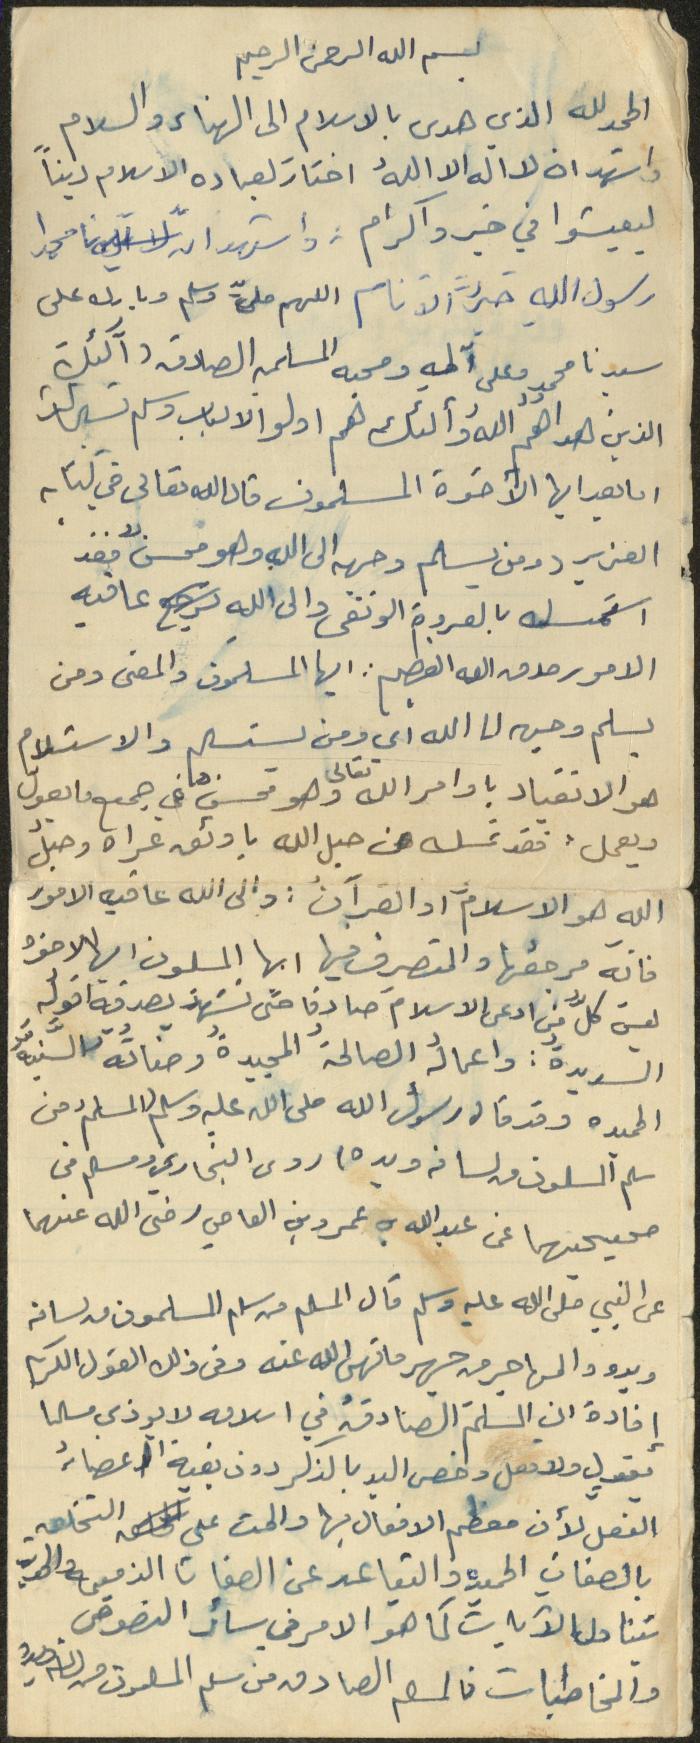 بسم الله الرحمن الرحيم
الحمد لله الذي هدى بالاسلام الى الهناء والسلام
واشهد ان لا اله الا اللهُ اختار لعباده الاسلام ديناً
ليعيشوا في خير واكرام : واشهد ان سيدنا محمدا
رسول الله خيرُ الانام اللهم صلِّ وسلم وبارك على
سيدنا محمدٍ وعلى آلهِ وصحبه المسلمين الصادقين وآلئك
الذين هداهُمُ اللهُ وألئك هم اولوا الالباب وسلم تسليما
اما بعد ايها الأخوة المسلمون قال الله تعالى في كتابه
العزيز (ومن يسلم وجهه الى اللهِ وهو محسنٌ فقد
استمسك بالعروةِ الوثقى والى اللهِ عاقبه
الامور صدق الله العظيم : ايها المسلمون والمعنى ومن
يسلم وجهه لـ الله اى ومن يستسلم والاستسلام
هو الانقياد باوامر الله تعالى وهو محسن في جميع ما يقول
ويعمل : فقد تمسك من حبل الله باوثق عراه وحبلُ
الله هو الاسلامُ او القرآنُ : والى الله عاقبه الامور
فانه مرجعها والمتصرف فيها ايها المسلمون ايها الاخوه
ليس كلُّ من ادعى الاسلام صادقا حتى تشهد بصدقه اقوله
السديدةُ : واعمالهُ الصالحةُ المجيدةُ وصفاتُه السنيةُ
الحميده وقد قال رسولُ الله صلى الله عليه وسلم (المسلم من
سلم المسلمون من لسانه ويده) روى البخاري ومسلم في
صحيحيهما عن عبد الله بن عمرو بن العاص رضى الله عنهما
عن النبي صلى الله عليه وسلم قال المسلم من سلم المسلمون من لسانه
ويده والمهاجر من هجر ما نهى الله عنه وفى ذلك القول الكريم
إفادة ان المسلمَ الصادقَ في اسلامه لا يوذى مسلما
بقولٍ ولا فعل وخص اليد بالذكر دون بقية الاعضاء
الفعل لأن معظم الافعال بها والحث على التخلق
بالصفاتِ الحميدهِ والتباعد عن الصفات الذميمه والحديث
يتناول الآيات كما هو الامر في سائر النصوص
والمخاطبات فالمسلم الصادق من سلم المسلمون من لسانه ويده